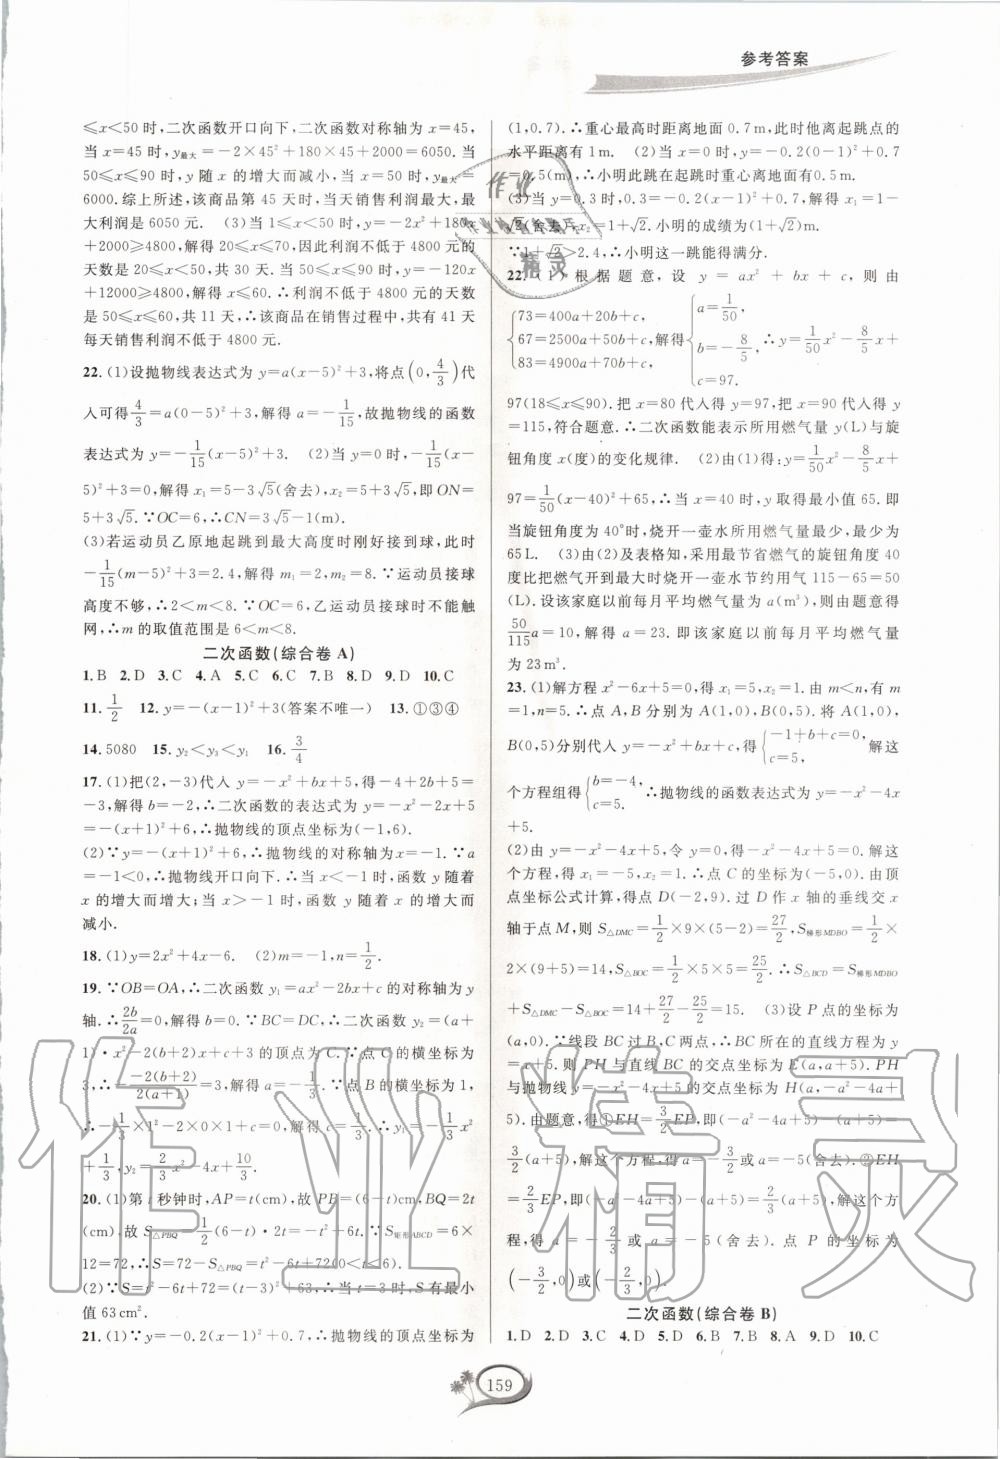 参考答案
≤x<50 时,二次函数开口向下,二次函数对称轴为 x=45,
当 x=45 时,y最大=-2×45²+180×45+2000=6050. 当
50≤x≤90 时,y 随 x 的增大而减小,当 x=50 时,y最大=
6000. 综上所述,该商品第 45 天时,当天销售利润最大,最
大利润是 6050 元. (3)当 1≤x<50 时,y=-2x²+180x
+2000≥4800,解得 20≤x≤70,因此利润不低于 4800 元的
天数是 20≤x<50,共 30 天. 当 50≤x≤90 时,y=-120x
+12000≥4800,解得 x≤60. ∴利润不低于 4800 元的天数
是 50≤x≤60,共 11 天,∴该商品在销售过程中,共有 41 天
每天销售利润不低于 4800 元.
22. (1)设抛物线表达式为 y=a(x-5)²+3,将点(0, 4/3)代
入可得 4/3=a(0-5)²+3,解得 a=-1/15,故抛物线的函数
表达式为 y=-1/15(x-5)²+3. (2)当 y=0 时,-1/15(x-
5)²+3=0,解得 x₁=5-3√5(舍去),x₂=5+3√5,即 ON=
5+3√5. ∵OC=6,∴CN=3√5-1(m).
(3)若运动员乙原地起跳到最大高度时刚好接到球,此时
-1/15(m-5)²+3=2.4,解得 m₁=2,m₂=8. ∵运动员接球
高度不够,∴2<m<8. ∵OC=6,乙运动员接球时不能触
网,∴m 的取值范围是 6<m<8.
二次函数(综合卷 A)
1. B 2. D 3. C 4. A 5. C 6. C 7. B 8. D 9. D 10. C
11. 1/2 12. y=-(x-1)²+3(答案不唯一) 13. ①③④
14. 5080 15. y₂<y₃<y₁ 16. 3/4
17. (1)把(2,-3)代入 y=-x²+bx+5,得-4+2b+5=
-3,解得 b=-2,∴二次函数的表达式为 y=-x²-2x+5
=-(x+1)²+6,∴抛物线的顶点坐标为(-1,6).
(2)∵y=-(x+1)²+6,∴抛物线的对称轴为 x=-1. ∵a
=-1<0,∴抛物线开口向下. ∴当 x<-1 时,函数 y 随着
x 的增大而增大;当 x>-1 时,函数 y 随着 x 的增大而
减小.
18. (1)y=2x²+4x-6. (2)m=-1,n=5/2.
19. ∵OB=OA,∴二次函数 y₁=ax²-2bx+c 的对称轴为 y
轴. ∴2b/2a=0,解得 b=0. ∵BC=DC,∴二次函数 y₂=(a+
1)·x²-2(b+2)x+c 的顶点为 C. ∵点 C 的横坐标为
3,∴-(-2(b+2))/(2(a+1))=3,∴a=-1/3. ∵点 B 的横坐标为 1,
∴-1/3×1²-2×0×1+c=0,解得 c=1/3. ∴y₁=-1/3x²
+1/3,y₂=2/3x²-4x+10/3.
20. (1)第 t 秒钟时,AP=t(cm),故 PB=(6-t)cm,BQ=2t
(cm),故 S△PBQ=1/2(6-t)·2t=-t²+6t. ∵S矩形ABCD=6×
12=72,∴S=72-S△PBQ=t²-6t+72(0<t<6).
(2)∵S=t²-6t+72=(t-3)²+63,∴当 t=3 时,S 有最小
值 63 cm².
21. (1)∵y=-0.2(x-1)²+0.7,∴抛物线的顶点坐标为
(1,0.7). ∴重心最高时距离地面 0.7 m,此时他离起跳点的
水平距离有 1 m. (2)当 x=0 时,y=-0.2(0-1)²+0.7
=0.5(m),∴小明此跳在起跳时重心离地面有 0.5 m.
(3)当 y=0.3 时,0.3=-0.2(x-1)²+0.7,解得 x₁=1-
√2(舍去),x₂=1+√2. ∴小明的成绩为(1+√2)m.
∵1+√2>2.4,∴小明这一跳能得满分.
22. (1)根据题意,设 y=ax²+bx+c,则由
{73=400a+20b+c, 67=2500a+50b+c, 83=4900a+70b+c, 解得{a=1/50, b=-8/5, c=97. ∴y=1/50x²-8/5x+
97(18≤x≤90). 把 x=80 代入得 y=97,把 x=90 代入得
y=115,符合题意. ∴二次函数能表示所用燃气量 y(L)与
旋钮角度 x(度)的变化规律. (2)由(1)得:y=1/50x²-8/5x+
97=1/50(x-40)²+65,∴当 x=40 时,y 取得最小值 65. 即
当旋钮角度为 40°时,烧开一壶水所用燃气量最少,最少为
65 L. (3)由(2)及表格知,采用最节省燃气的旋钮角度 40
度比把燃气开到最大时烧开一壶水节约用气 115-65=50
(L). 设该家庭以前每月平均燃气量为 a(m³),则由题意得
50/115a=10,解得 a=23. 即该家庭以前每月平均燃气量
为 23 m³.
23. (1)解方程 x²-6x+5=0,得 x₁=5,x₂=1. 由 m<n,有 m
=1,n=5. ∴点 A,B 分别为 A(1,0),B(0,5). 将 A(1,0),
B(0,5)分别代入 y=-x²+bx+c,得{-1+b+c=0, c=5. 解这
个方程组得{b=-4, c=5. ∴抛物线的函数表达式为 y=-x²-4x
+5.
(2)由 y=-x²-4x+5,令 y=0,得-x²-4x+5=0. 解这
个方程,得 x₁=-5,x₂=1. ∴点 C 的坐标为(-5,0). 由顶
点坐标公式计算,得点 D(-2,9). 过 D 作 x 轴的垂线交 x
轴于点 M,则 S△DMC=1/2×9×(5-2)=27/2,S梯形MDBO=1/2×
2×(9+5)=14,S△BOC=1/2×5×5=25/2. ∴S△BCD=S梯形MDBO
+S△DMC-S△BOC=14+27/2-25/2=15. (3)设 P 点的坐标为
(a,0). ∵线段 BC 过 B,C 两点,∴BC 所在的直线方程为
y=x+5. 则 PH 与直线 BC 的交点坐标为 E(a,a+5),PH
与抛物线 y=-x²-4x+5 的交点坐标为 H(a,-a²-4a+
5). 由题意,得①EH=3/2EP,即(-a²-4a+5)-(a+5)=
3/2(a+5),解这个方程,得 a=-3/2或 a=-5(舍去). ②EH=
2/3EP,即(-a²-4a+5)-(a+5)=2/3(a+5),解这个方
程,得 a=-2/3或 a=-5(舍去). 点 P 的坐标为
(-3/2,0)或(-2/3,0).
二次函数(综合卷 B)
1. D 2. C 3. C 4. D 5. D 6. B 7. B 8. A 9. D 10. C
159
作业精灵